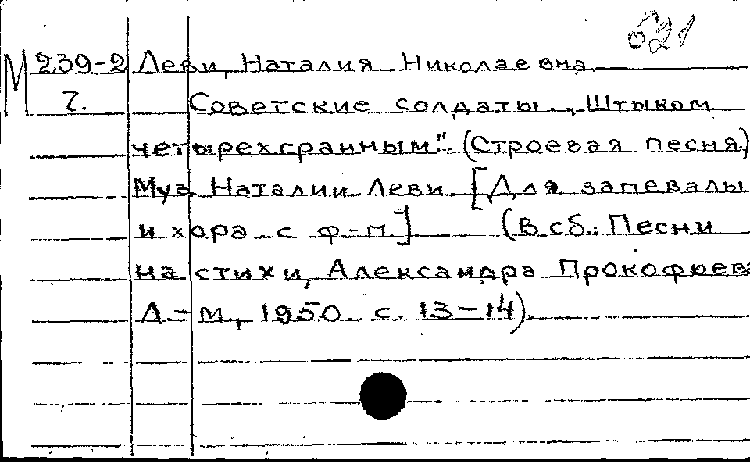 621
М 239-2 Леви, Наталия Николаевна
7. Советские солдаты. „Штыком
четырехгранным". (Строевая песня)
Муз. Наталии Леви. [Для запевалы
и хора с ф-п.] (В сб.: Песни
на стихи, Александра Прокофьева
Л-М, 1950 с. 13-14).